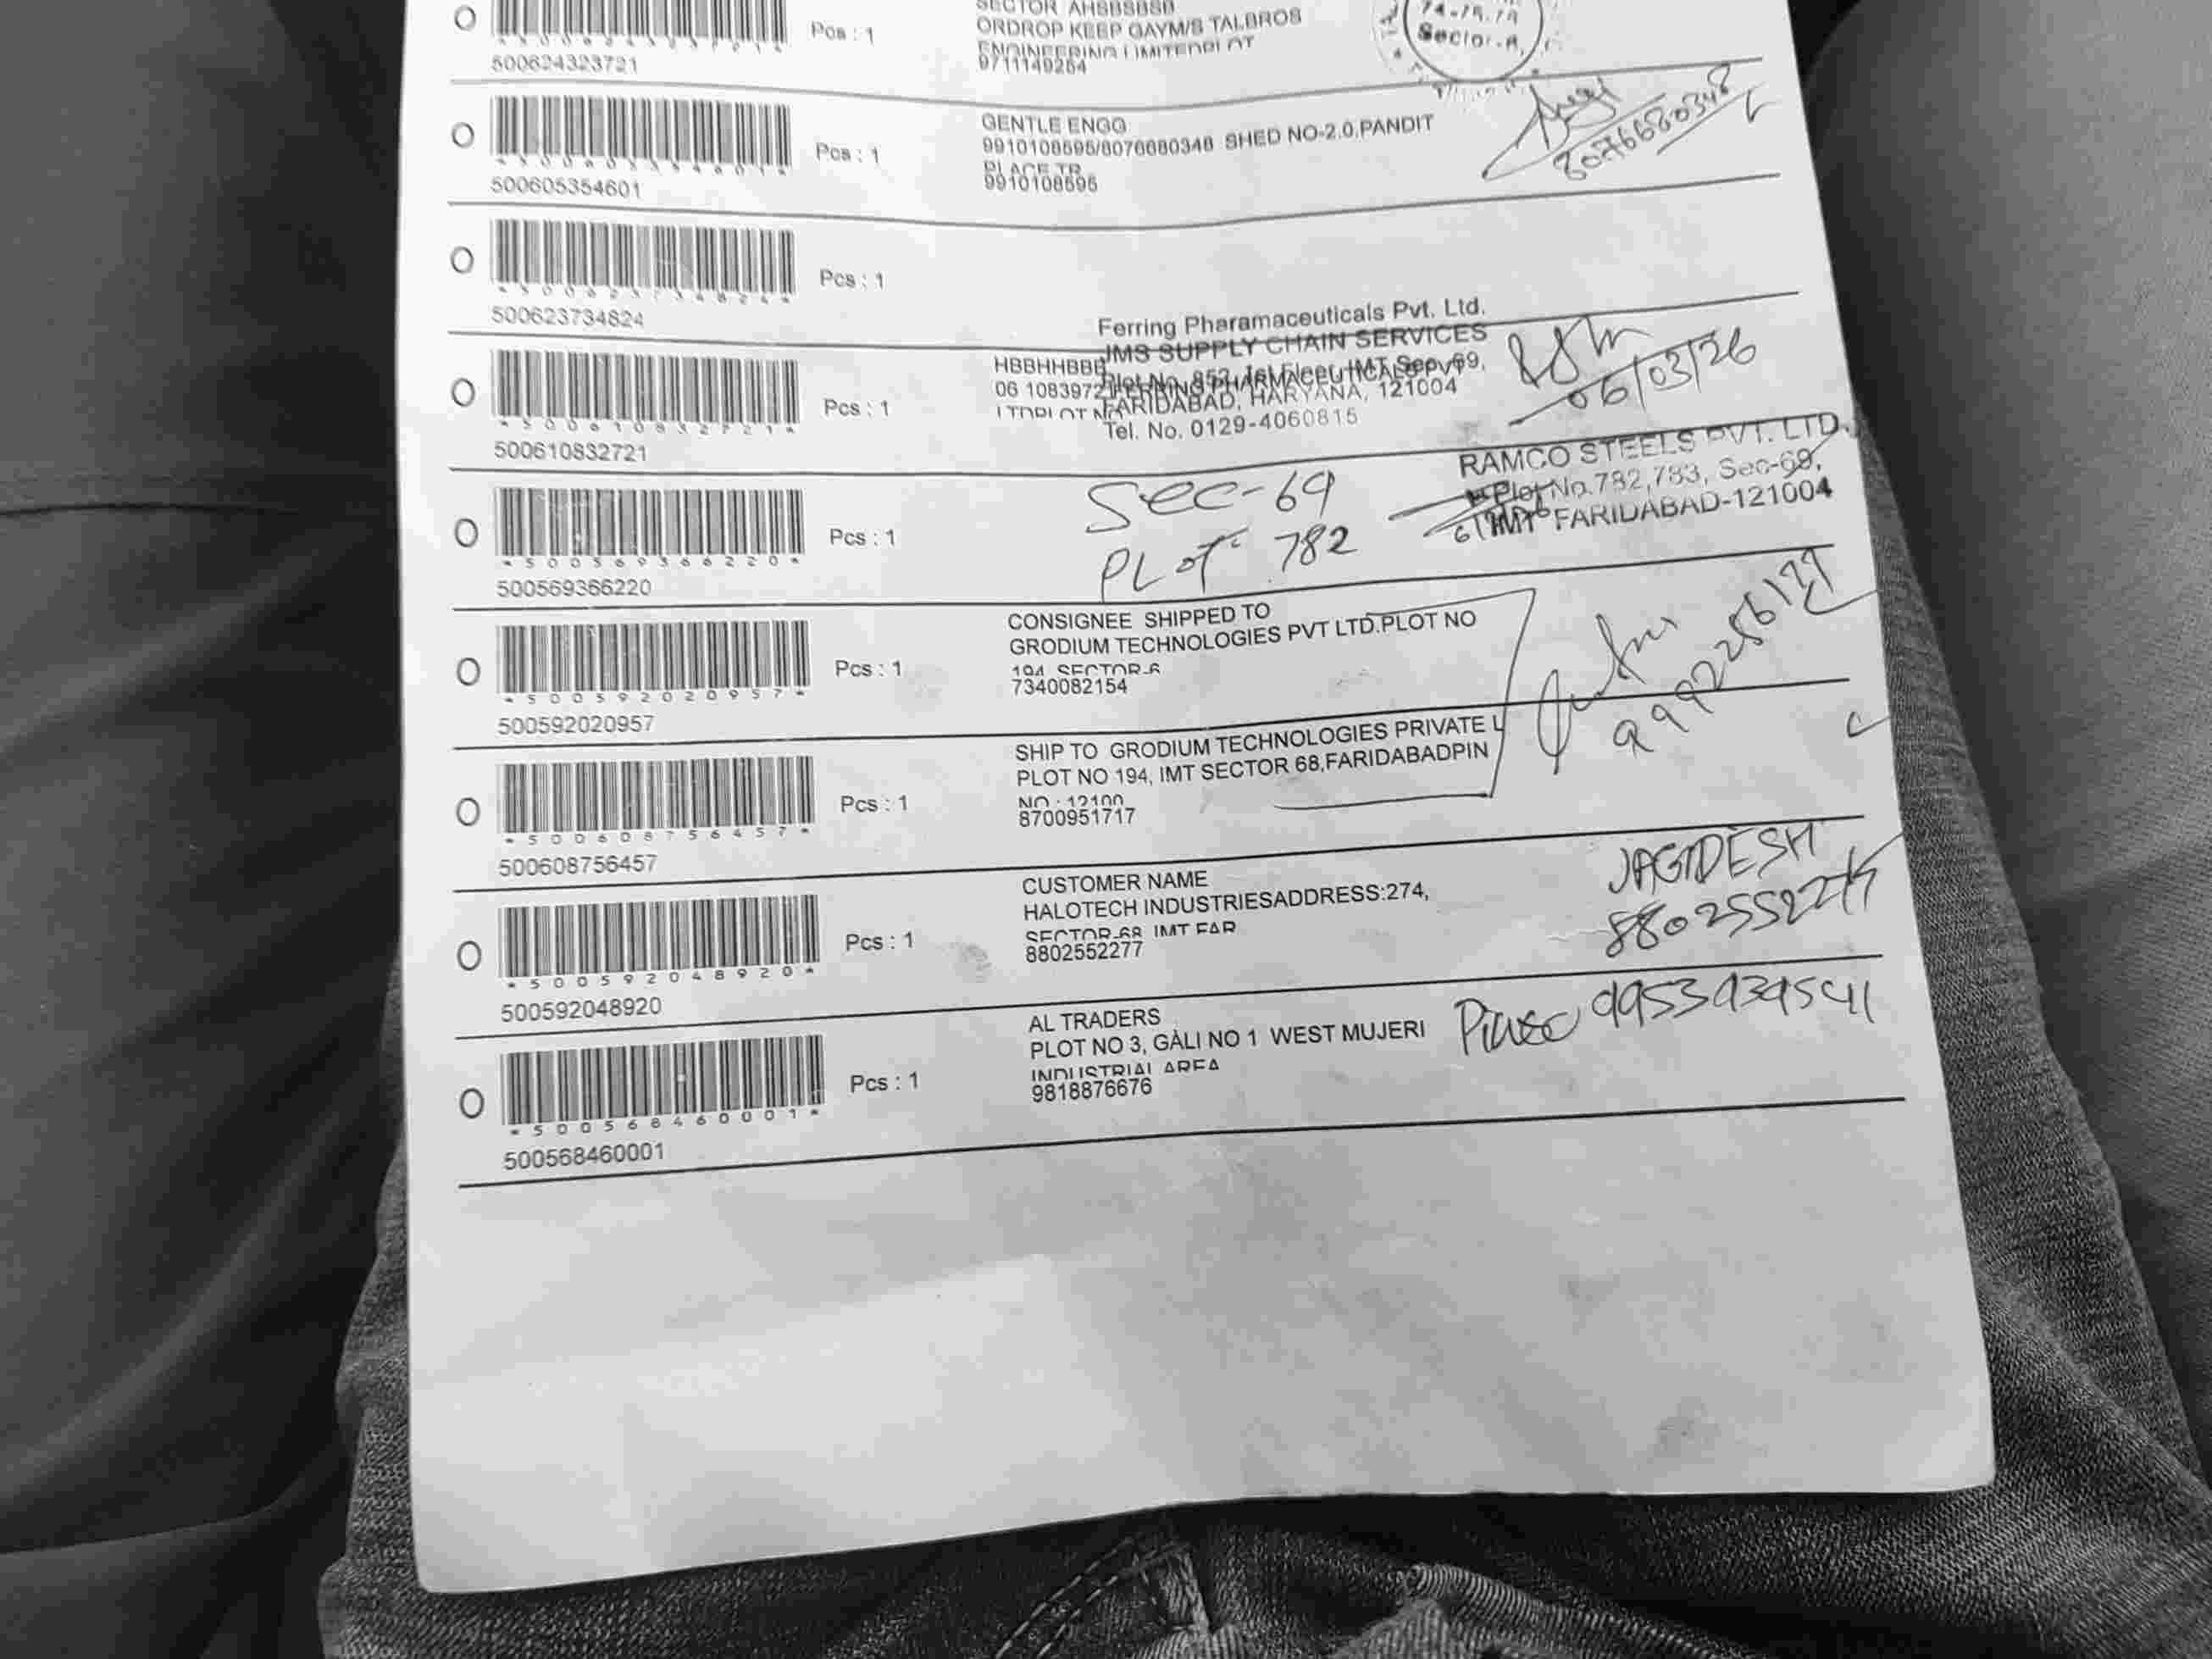 SECTOR AHSBSBSB
ORDROP KEEP GAYM/S TALBROS
ENGINEERING LIMITEDPLOT
9711149264
Pcs : 1
500624323721
74-75,
Sector-
GENTLE ENGG
9910108595/8076680348 SHED NO-2.0.PANDIT
PLACE TR
9910108595
Pcs : 1
500605354601
8076680348
*500623734824*
Pcs : 1
500623734824
Ferring Pharamaceuticals Pvt. Ltd.
JMS SUPPLY CHAIN SERVICES
Plot No. 852, 1st Floor, IMT Sec-69,
FARIDABAD, HARYANA, 121004
Tel. No. 0129-4060815
HBBHHBBB
06 1083972 FERRING PHARMACEUTICALS PVT
LTDPLOT NO
*500610832721*
Pcs : 1
500610832721
06/03/26
*500569366220*
Pcs : 1
500569366220
Sec-69
PLot 782
RAMCO STEELS PVT. LTD.
Plot No.782,783, Sec-69,
IMT FARIDABAD-121004
CONSIGNEE SHIPPED TO
GRODIUM TECHNOLOGIES PVT LTD.PLOT NO
194, SECTOR-6
7340082154
*500592020957*
Pcs : 1
500592020957
SHIP TO GRODIUM TECHNOLOGIES PRIVATE L
PLOT NO 194, IMT SECTOR 68,FARIDABADPIN
NO : 12100
8700951717
*500608756457*
Pcs : 1
500608756457
CUSTOMER NAME
HALOTECH INDUSTRIESADDRESS:274,
SECTOR-68, IMT FAR
8802552277
*500592048920*
Pcs : 1
500592048920
JAGIDESH
8802552277
AL TRADERS
PLOT NO 3, GALI NO 1 WEST MUJERI
INDUSTRIAL AREA
9818876676
*500568460001*
Pcs : 1
500568460001